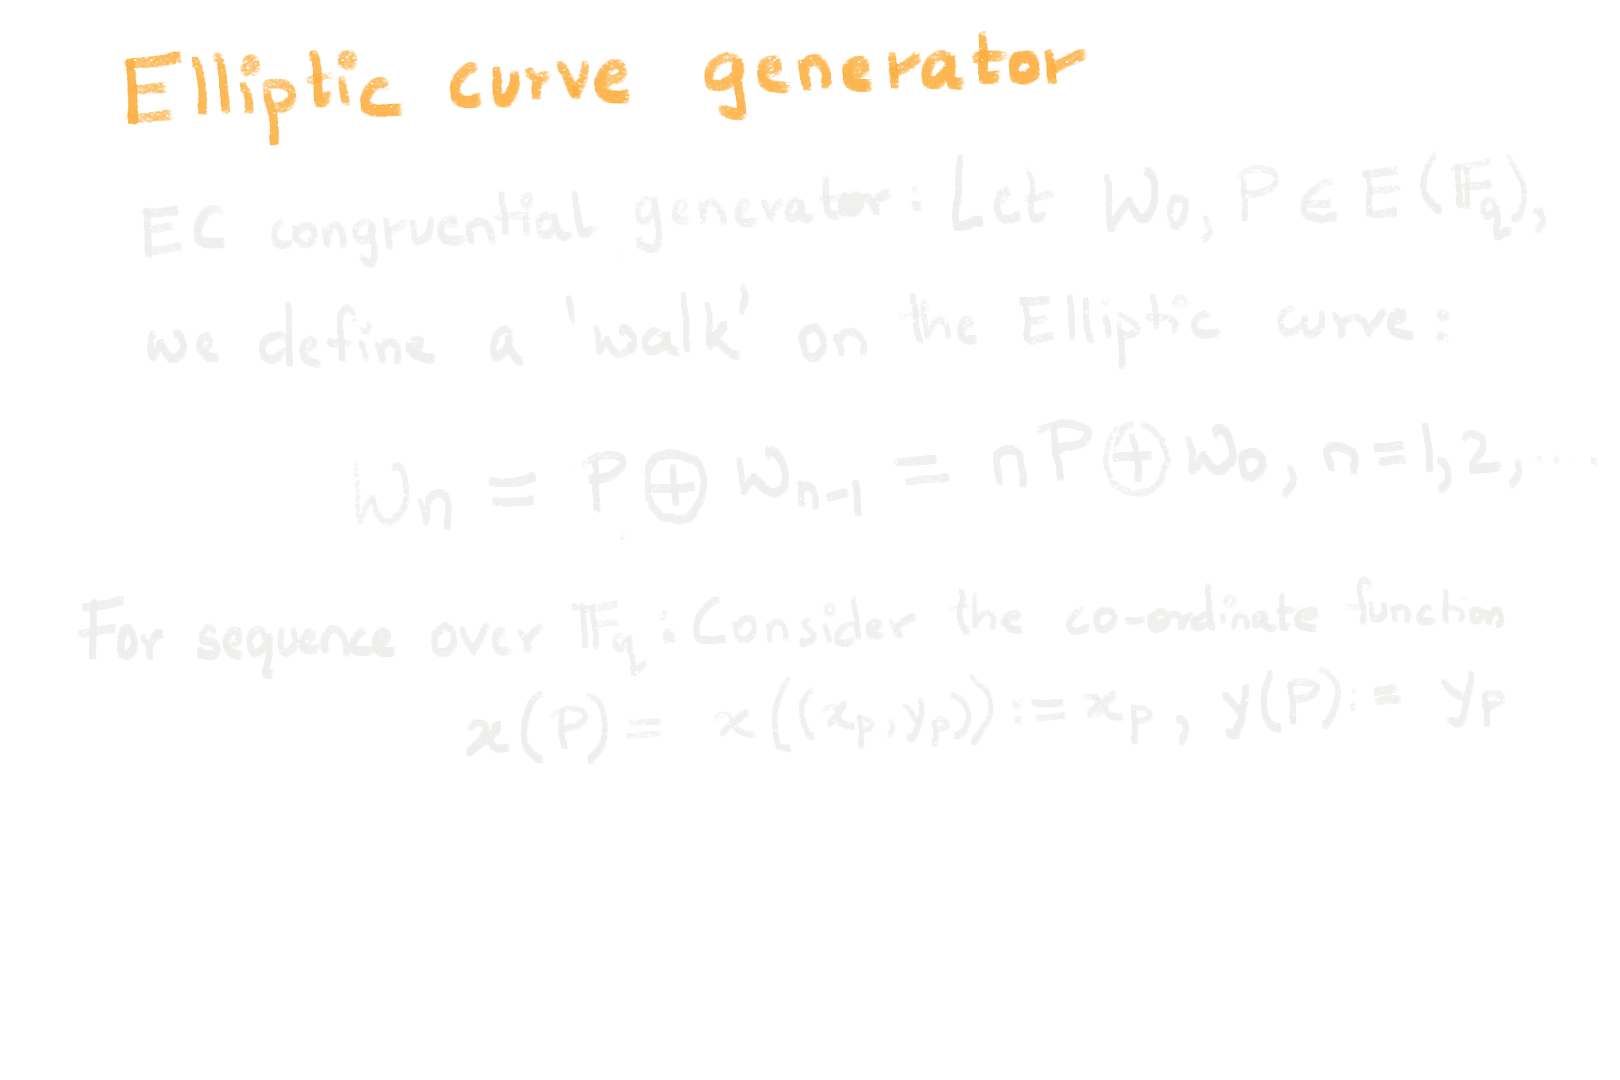 Elliptic curve generator
EC congruential generator: Let W₀, P ∈ E(𝔽q),
we define a 'walk' on the Elliptic curve:
Wn = P ⊕ Wn-1 = nP ⊕ W₀, n=1,2,....
For sequence over 𝔽q: Consider the co-ordinate function
x(P) = x((xp, yp)) := xp, y(P) := yp